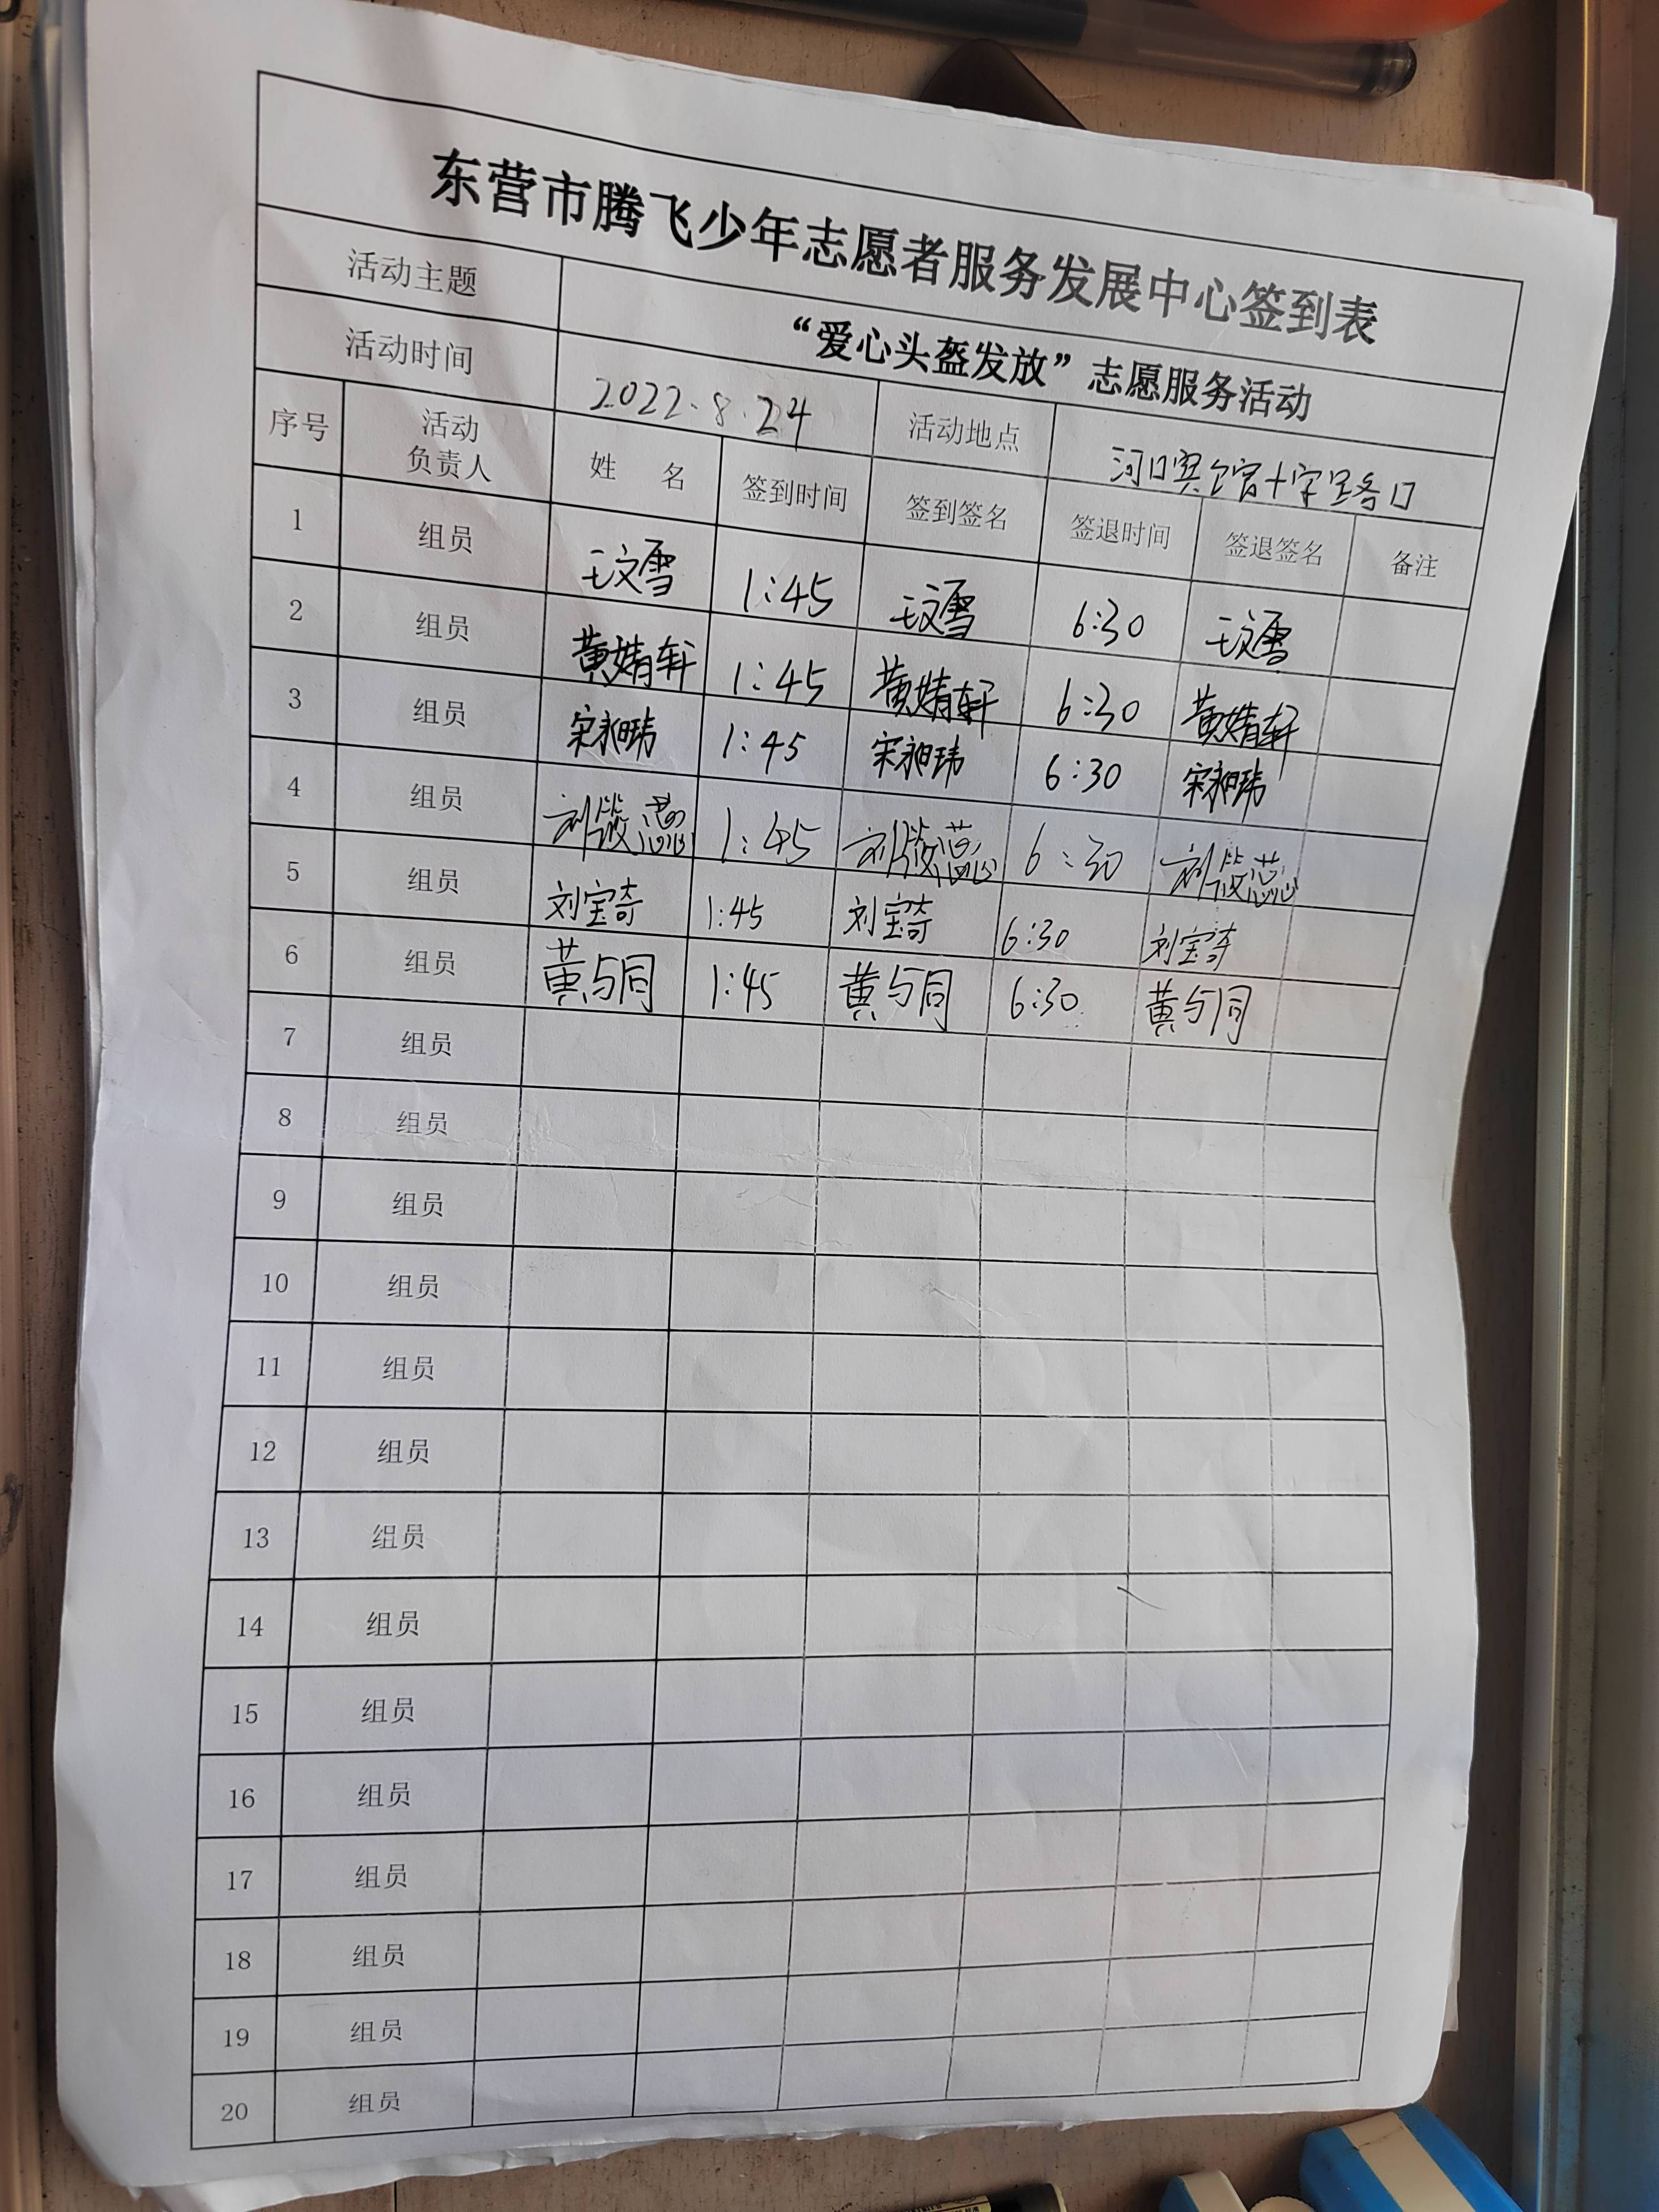 东营市腾飞少年志愿者服务发展中心签到表
活动主题 “爱心头盔发放”志愿服务活动
活动时间 2022.8.24 活动地点 河口宾馆十字路口
序号 活动负责人 姓 名 签到时间 签到签名 签退时间 签退签名 备注
1 组员 王文雪 1:45 王文雪 6:30 王文雪
2 组员 黄婧轩 1:45 黄婧轩 6:30 黄婧轩
3 组员 宋昶玮 1:45 宋昶玮 6:30 宋昶玮
4 组员 刘筱蕊 1:45 刘筱蕊 6:30 刘筱蕊
5 组员 刘宝奇 1:45 刘宝奇 6:30 刘宝奇
6 组员 黄与同 1:45 黄与同 6:30 黄与同
7 组员
8 组员
9 组员
10 组员
11 组员
12 组员
13 组员
14 组员
15 组员
16 组员
17 组员
18 组员
19 组员
20 组员